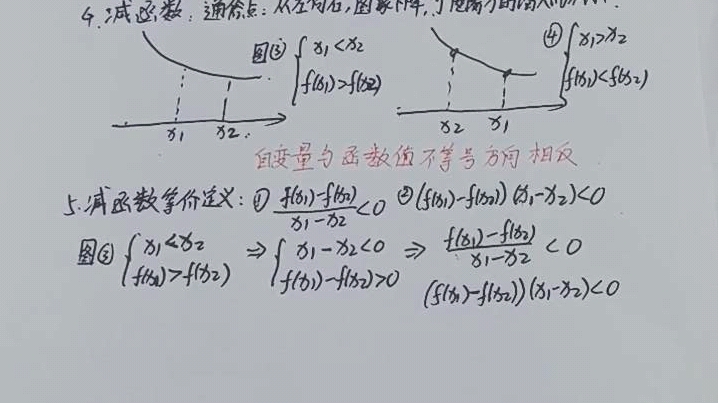 4.减函数：通俗点：从左向右，图象下降，
图③ { x₁<x₂
f(x₁)>f(x₂)
x₁ x₂
④ { x₁>x₂
f(x₁)<f(x₂)
x₂ x₁
自变量与函数值不等号方向相反
5.减函数等价定义：① f(x₁)-f(x₂) / x₁-x₂ <0 ② (f(x₁)-f(x₂))(x₁-x₂)<0
图③ { x₁<x₂ ⇒ { x₁-x₂<0 ⇒ f(x₁)-f(x₂) / x₁-x₂ <0
f(x₁)>f(x₂) f(x₁)-f(x₂)>0 (f(x₁)-f(x₂))(x₁-x₂)<0